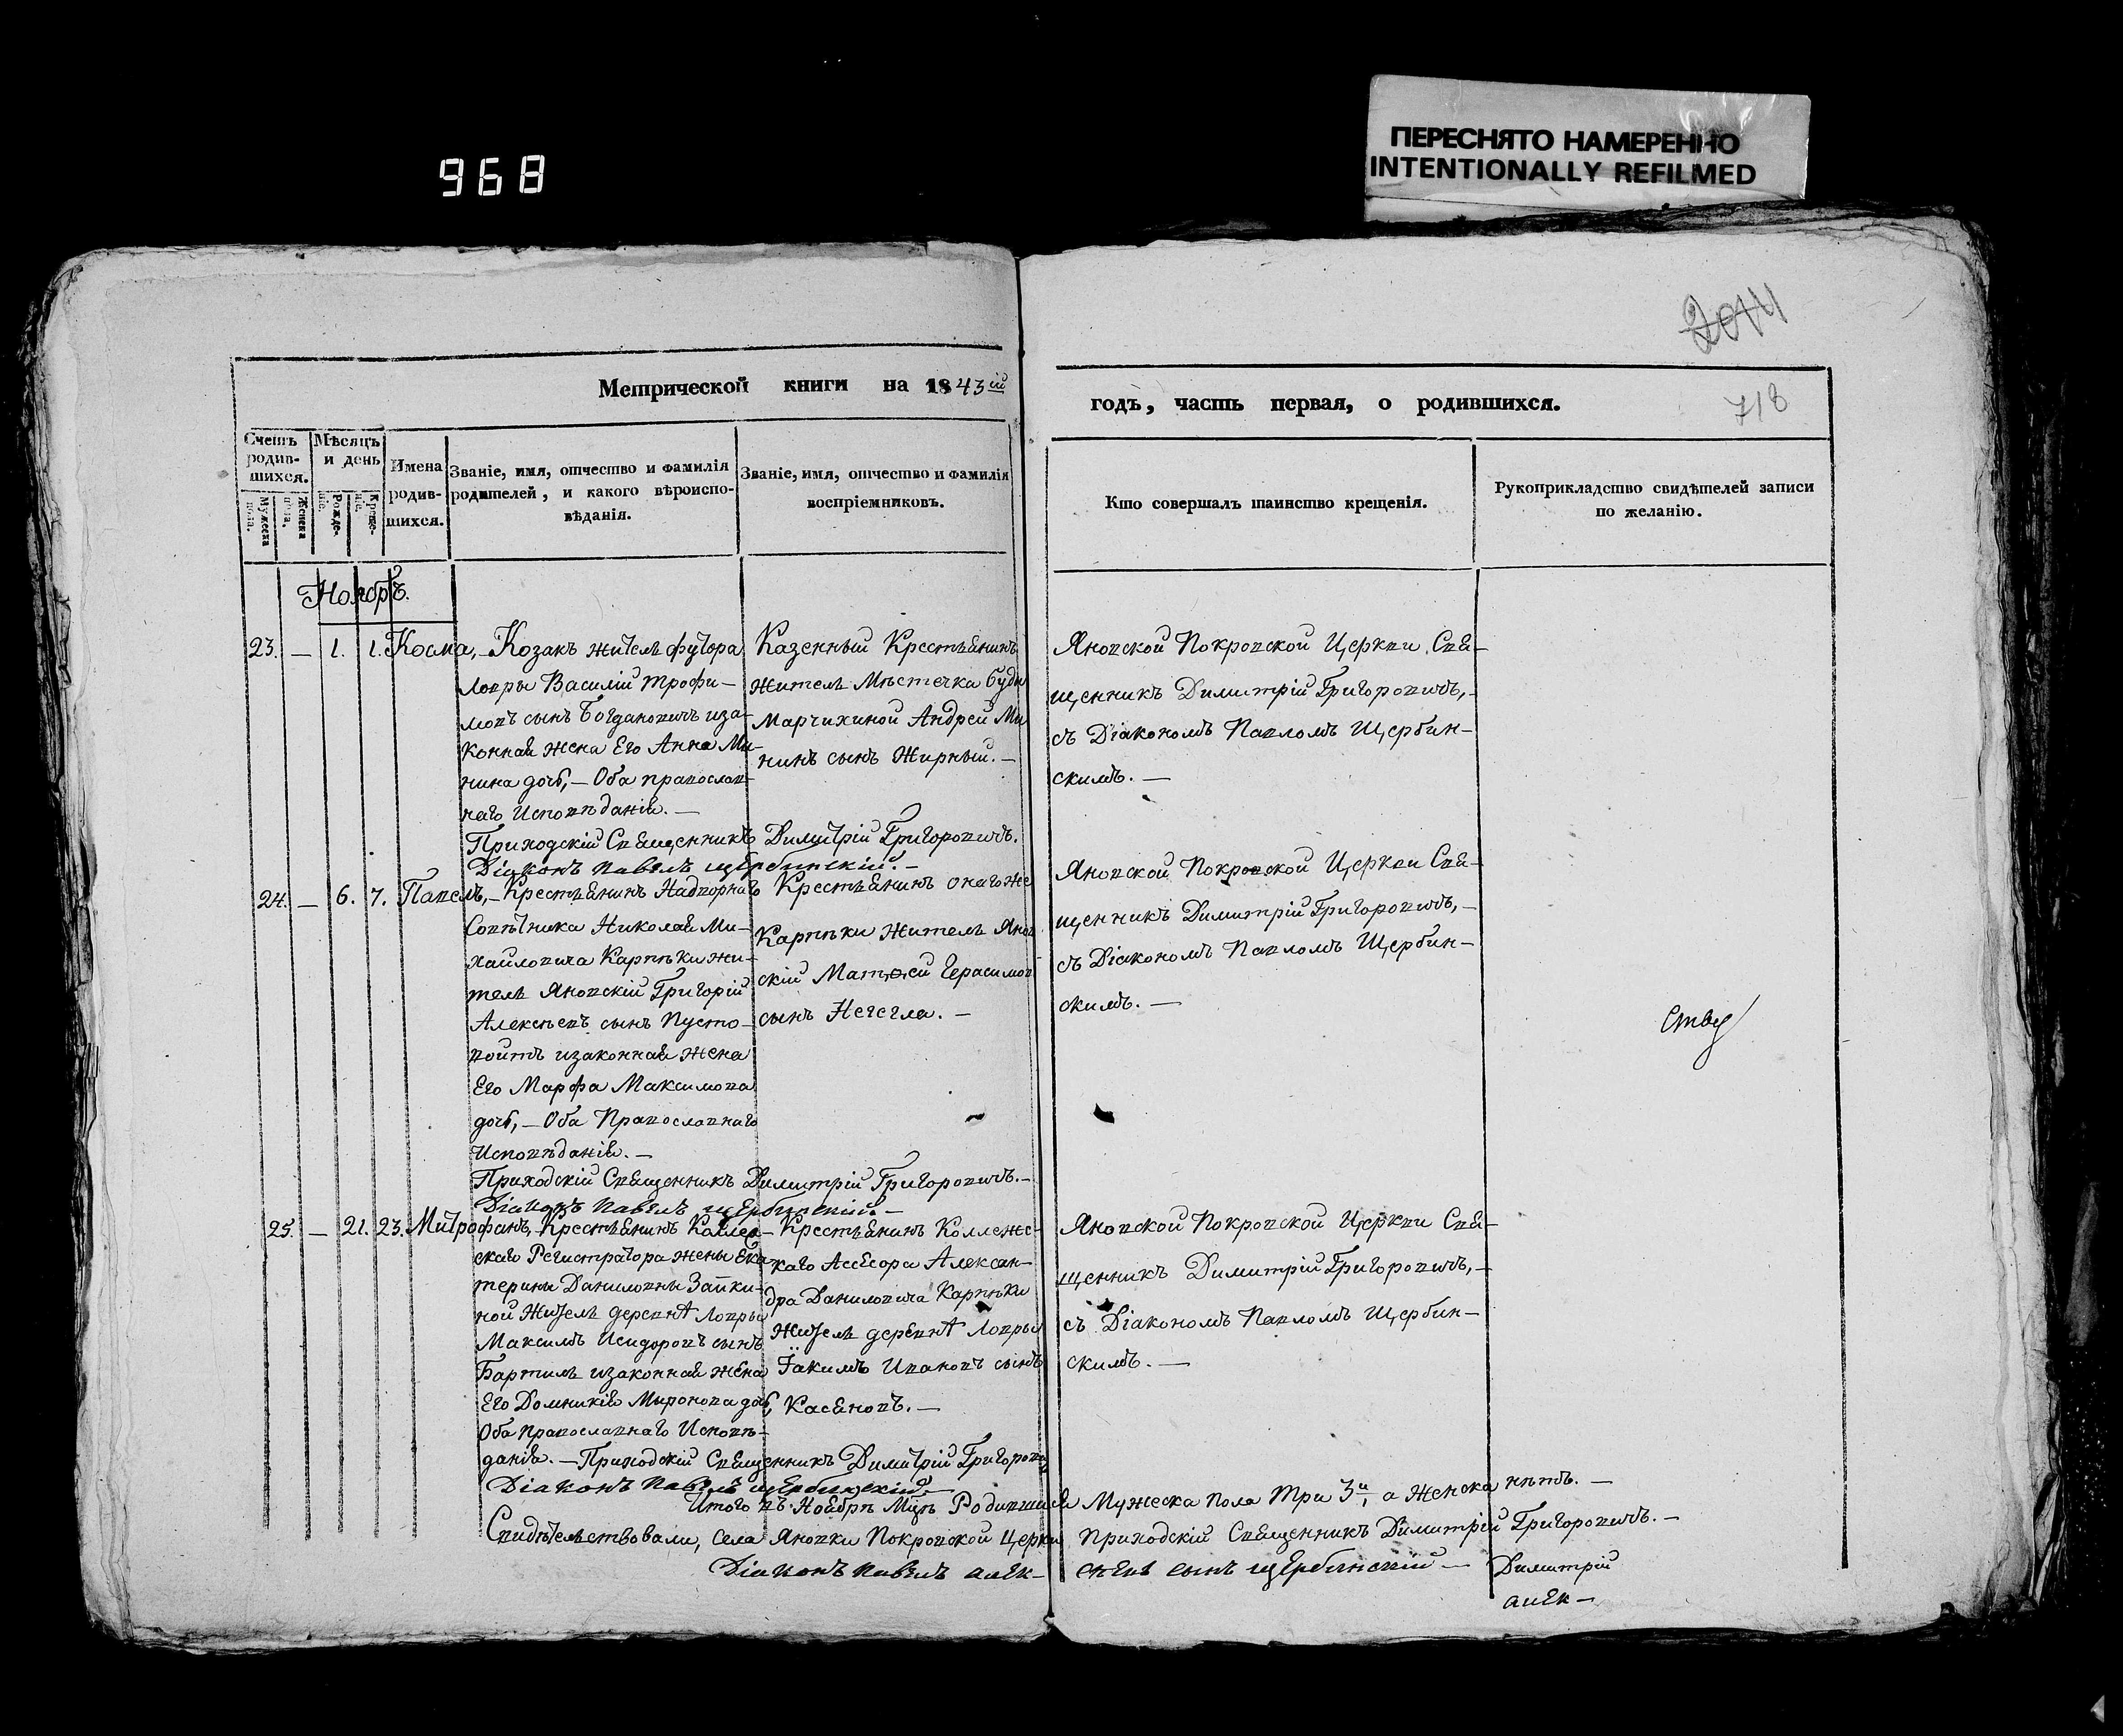 968
ПЕРЕСНЯТО НАМЕРЕННО
INTENTIONALLY REFILMED
2044
718
Метрической книги на 1843ій
годъ, часть первая, о родившихся.
Счетъ родив-шихся.
Мужеска пола.
Женска пола.
Мѣсяцъ и день
Рожде-ніе.
Креще-ніе.
Имена родив-шихся.
Званіе, имя, отчество и фамилія
родителей, и какого вѣроиспо-
вѣданія.
Званіе, имя, отчество и фамилія
воспріемниковъ.
Кто совершалъ таинство крещенія.
Рукоприкладство свидѣтелей записи
по желанію.
Ноябрь.
23. — 1. 1. Косма, — Козакъ житель футора
Ловры Василій Трофи—
мовъ сынъ Богдановичъ иза-
конная жена Его Анна Ми-
нина дочь, — Оба православ-
наго Исповѣданія. —
Казенный Крестьянинъ
житель Мѣстечка Буди
Марчихиной Андрей Ми
нинъ сынъ Жирный. —
Яновской Покровской Церкви Свя—
щенникъ Димитрій Григоровичъ, —
съ Діакономъ Павломъ Щербин—
скимъ. —
Приходскій Священникъ Димитрій Григоровичъ.
Діаконъ Павелъ Щербинскій. —
24. — 6. 7. Павелъ, — Крестьянинъ Надворнаго
Совѣтника Николая Ми—
хайловича Карпѣки жи—
тель Яновскій Григорій
Алексѣевъ сынъ Пусто—
войтъ изаконная жена
Его Марфа Максимова
дочь, — Оба Православнаго
Исповѣданія. —
Крестьянинъ онагоже
Карпѣки житель Янов
скій Матѳей Герасимов
сынъ Нечегла. —
Яновской Покровской Церкви Свя—
щенникъ Димитрій Григоровичъ, —
съ Діакономъ Павломъ Щербин—
скимъ. —
Приходскій Священникъ Димитрій Григоровичъ. —
Діаконъ Павелъ Щербинскій —
25. — 21. 23. Митрофанъ, — Крестьянинъ Коллеж—
скаго Регистратора жены Ека
терины Даниловны Запки—
ной Житель деревнѣ Ловры
Максимъ Исидоровъ сынъ
Бартишъ изаконная жена
Его Домникія Миронова дочь,
Оба православнаго Исповѣ—
данія. — Приходскій Священникъ Димитрій Григорови
Крестьянинъ Коллежс—
каго Асесора Алексан—
дра Даниловича Карпѣки
Житель деревнѣ Ловры
Іакимъ Ивановъ сынъ
Касяновъ. —
Яновской Покровской Церкви Свя—
щенникъ Димитрій Григоровичъ, —
съ Діакономъ Павломъ Щербин—
скимъ. —
Діаконъ Павелъ Щербинскій. —
Итого въ Ноябрѣ Мцѣ Родившися Мужеска пола три 3и, а Женска нѣтъ. —
Свидѣтельствовали, села Яновки Покровской Церкви Приходскій Священникъ Димитрій Григоровичъ. —
Діаконъ Павелъ алек— сѣевъ сынъ Щербинскій —
Димитрій
алек—